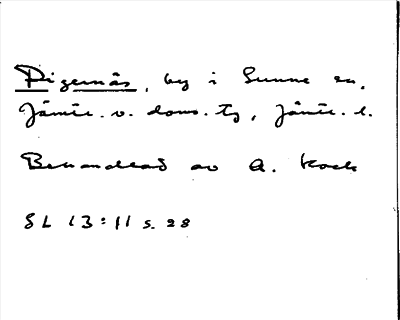 Digernäs, by i Sunne sn,
Jämtl. v. doms. tg, Jämtl. l.
Behandlad av A. Kock
SL 13:11 s. 28